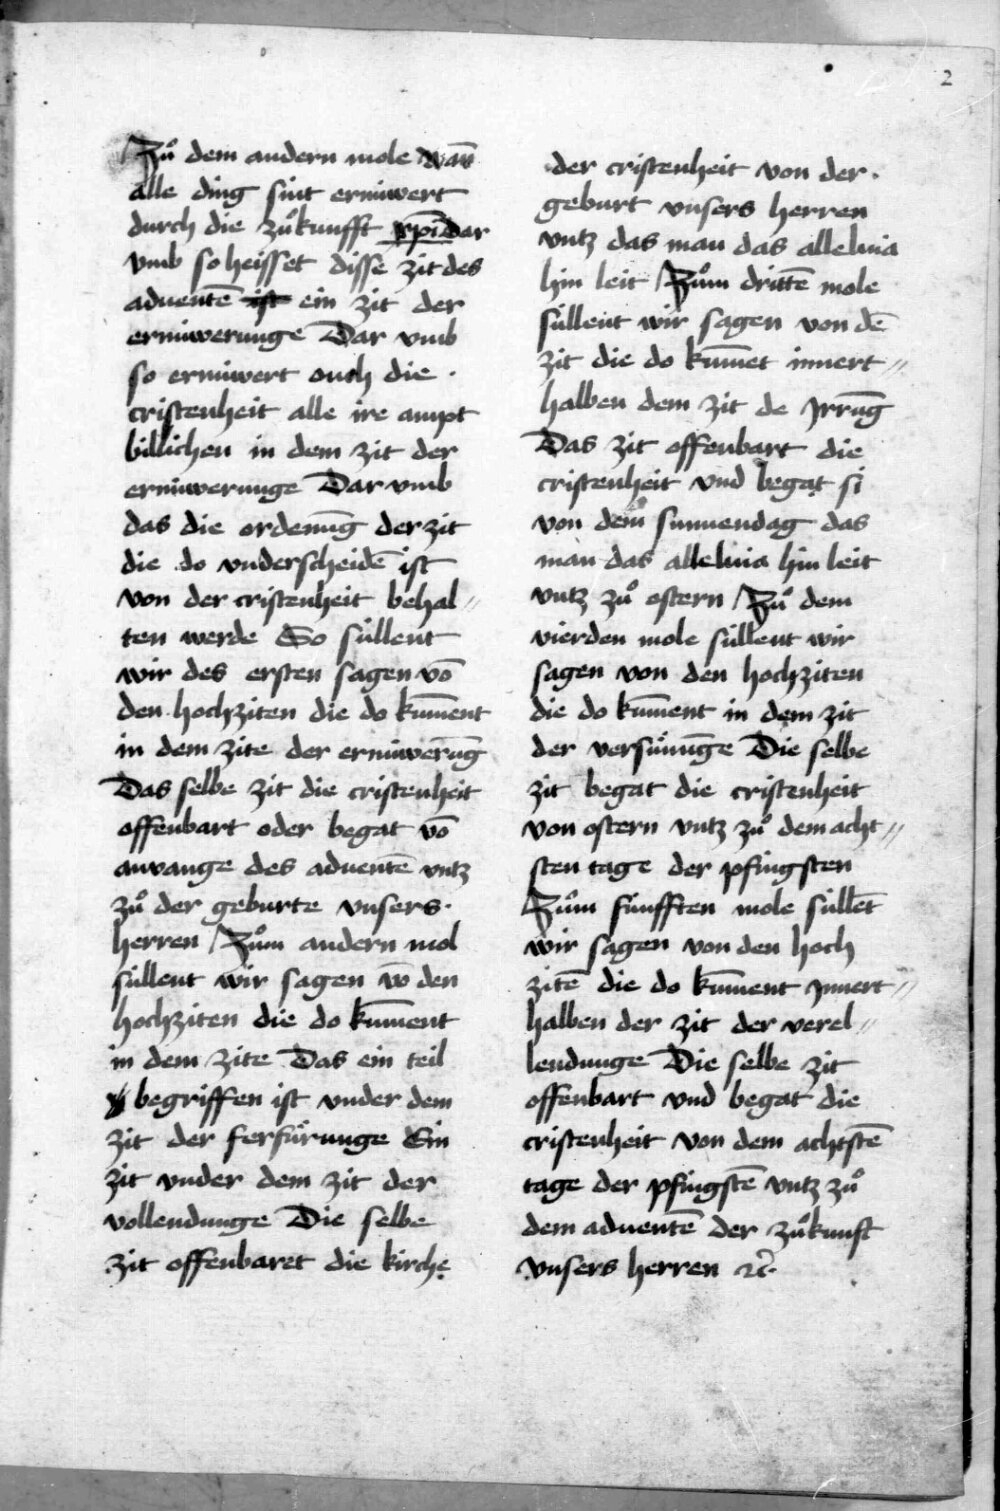 2
Zuͦ dem andern mole wañ
alle ding sint ernuwert
durch die zuͦkunfft xp̄i Dar
vmb so heisset disse zit des
aduentē ist ein zit der
ernuwerunge Dar vmb
so ernuwert ouch die ·
cristenheit alle ire ampt
billichen in dem zit der
ernuwerunge Dar vmb
das die ordenūg der zit
die do vnderscheidē ist
von der cristenheit behal〃
ten werde So süllent
wir des ersten sagen vō
den hochziten die do kūment
in dem zite der ernuwerūg
Das selbe zit die cristenheit
offenbart oder begat vō
anuange des aduentē vntz
zuͦ der geburte vnsers ·
herren Zuͦm andern mol
süllent wir sagen vō den
hochziten die do kūment
in dem zite Das ein teil
begriffen ist vnder dem
zit der ferfürunge Ein
zit vnder dem zit der
vollendunge Die selbe
zit offenbaret die kirche
der cristenheit von der ·
geburt vnsers herren
vntz das man das alleluia
hin leit Zuͦm drittē mole
süllent wir sagen von dē
zit die do kūmet innert〃
halben dem zit de Jrrūg
Das zit offenbart die
cristenheit vnd begat si
von dem sunnendag das
man das alleluia hin leit
vntz zuͦ ostern Zuͦ dem
vierden mole süllent wir
sagen von den hochziten
die do kūment in dem zit
der versünūge Die selbe
zit begat die cristenheit
von ostern vntz zuͦ dem acht〃
sten tage der pfingsten
Zuͦm fünfften mole süllēt
wir sagen von den hoch
zitē die do kūment Jnnert〃
halben der zit der verel〃
lendunge Die selbe zit
offenbart vnd begat die
cristenheit von dem achtstē
tage der pfingstē vntz zuͦ
dem aduentē der zuͦkunft
vnsers herren ꝛc̄